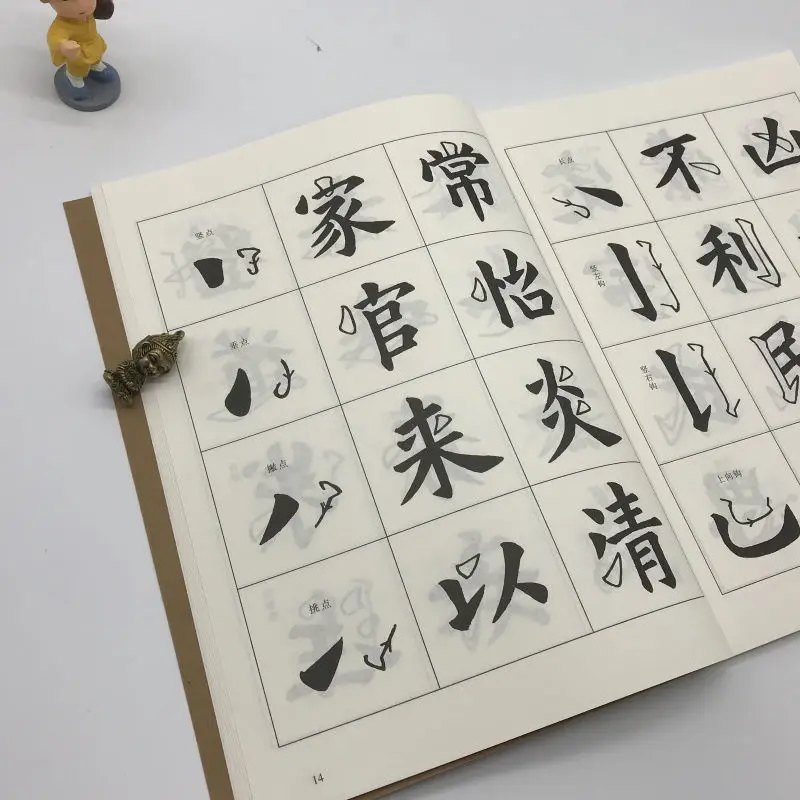 竖点 家 常
垂点 官 怡
撇点 来 炎
挑点 以 清
14
长点 不 凶
竖左钩 利
竖右钩
上向钩